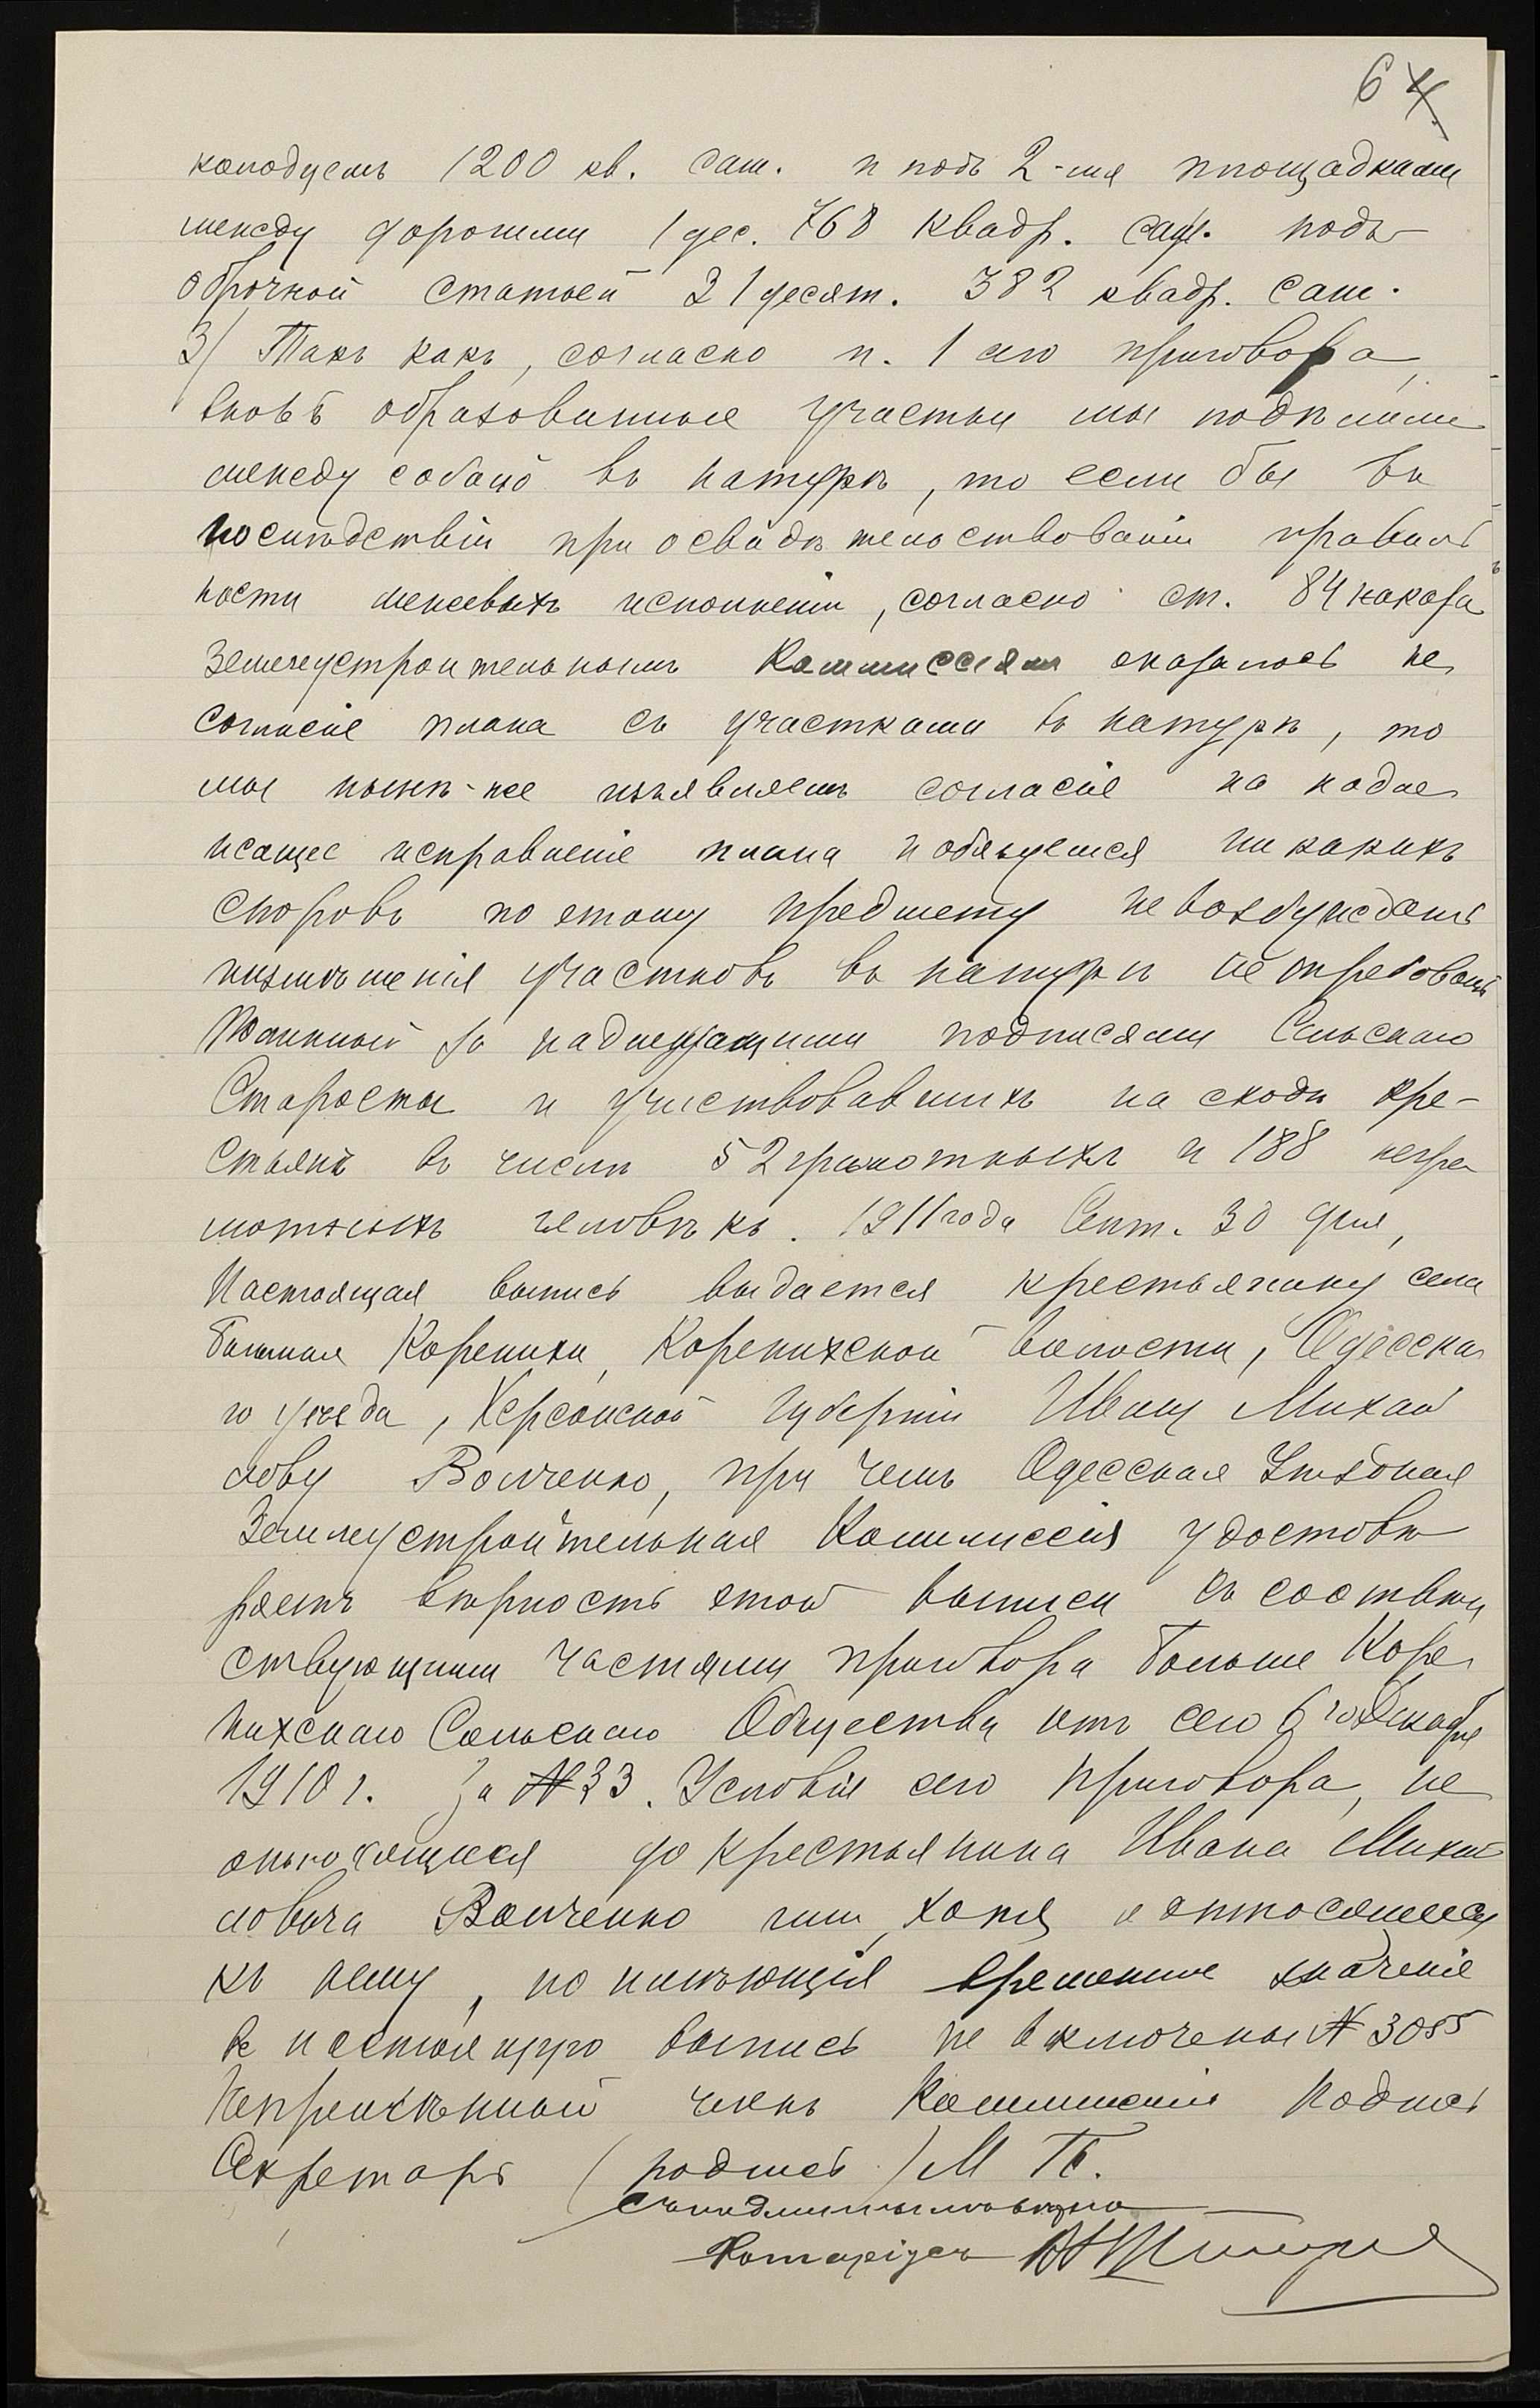 64
колодцемъ 1200 кв. саж. и подъ 2-мя площадками
между дорогами 1 дес. 768 квадр. саж. подъ
оброчной статьей 21 десят. 382 квадр. саж.
3) Такъ какъ, согласно п. 1 сего приговора,
вновь образованные участки мы подѣлили
между собою въ натурѣ, то если бы въ
послѣдствіи при освидѣтельствованіи правиль
ности межевыхъ исполненій, согласно ст. 84 наказа
Землеустроительнымъ Коммиссіямъ оказалось не
согласіе плана съ участками въ натурѣ, то
мы нынѣ-же изъявляемъ согласіе на надле
жащее исправленіе плана и обязуемся никакихъ
споровъ по етому предмету не возбуждать
и измѣненія участковъ въ натурѣ не требовать
Подлинный за надлежащими подписями Сельскаго
Старосты и участвовавшихъ на сходѣ кре-
стьянъ въ числѣ 52 грамотныхъ и 188 негра
мотныхъ человѣкъ. 1911 года Сент. 30 дня,
Настоящая выпись выдается крестьянину села
Большая Корениха, Коренихской волости, Одесска
го уѣзда, Херсонской губерніи Ивану Михай
лову Волченко, при чемъ Одесская Уѣздная
Землеустроительная Коммиссія удостовѣ
ряетъ вѣрность этой выписи съ соотвѣт
ствующими частями приговора Больше Коре
нихскаго Сельскаго Общества отъ сего 6го Декабря
1910 г. За № 33. Условія сего приговора, не
относящіеся до крестьянина Ивана Михай
ловича Волченко или, хотя и относящіеся
къ нему, но имѣющія временное значеніе
въ настоящую выпись не включены № 3055
Непремѣнный членъ Коммиссіи подпись
Секретарь (подпись) М П.
Съ подлиннымъ вѣрно
Нотаріусъ